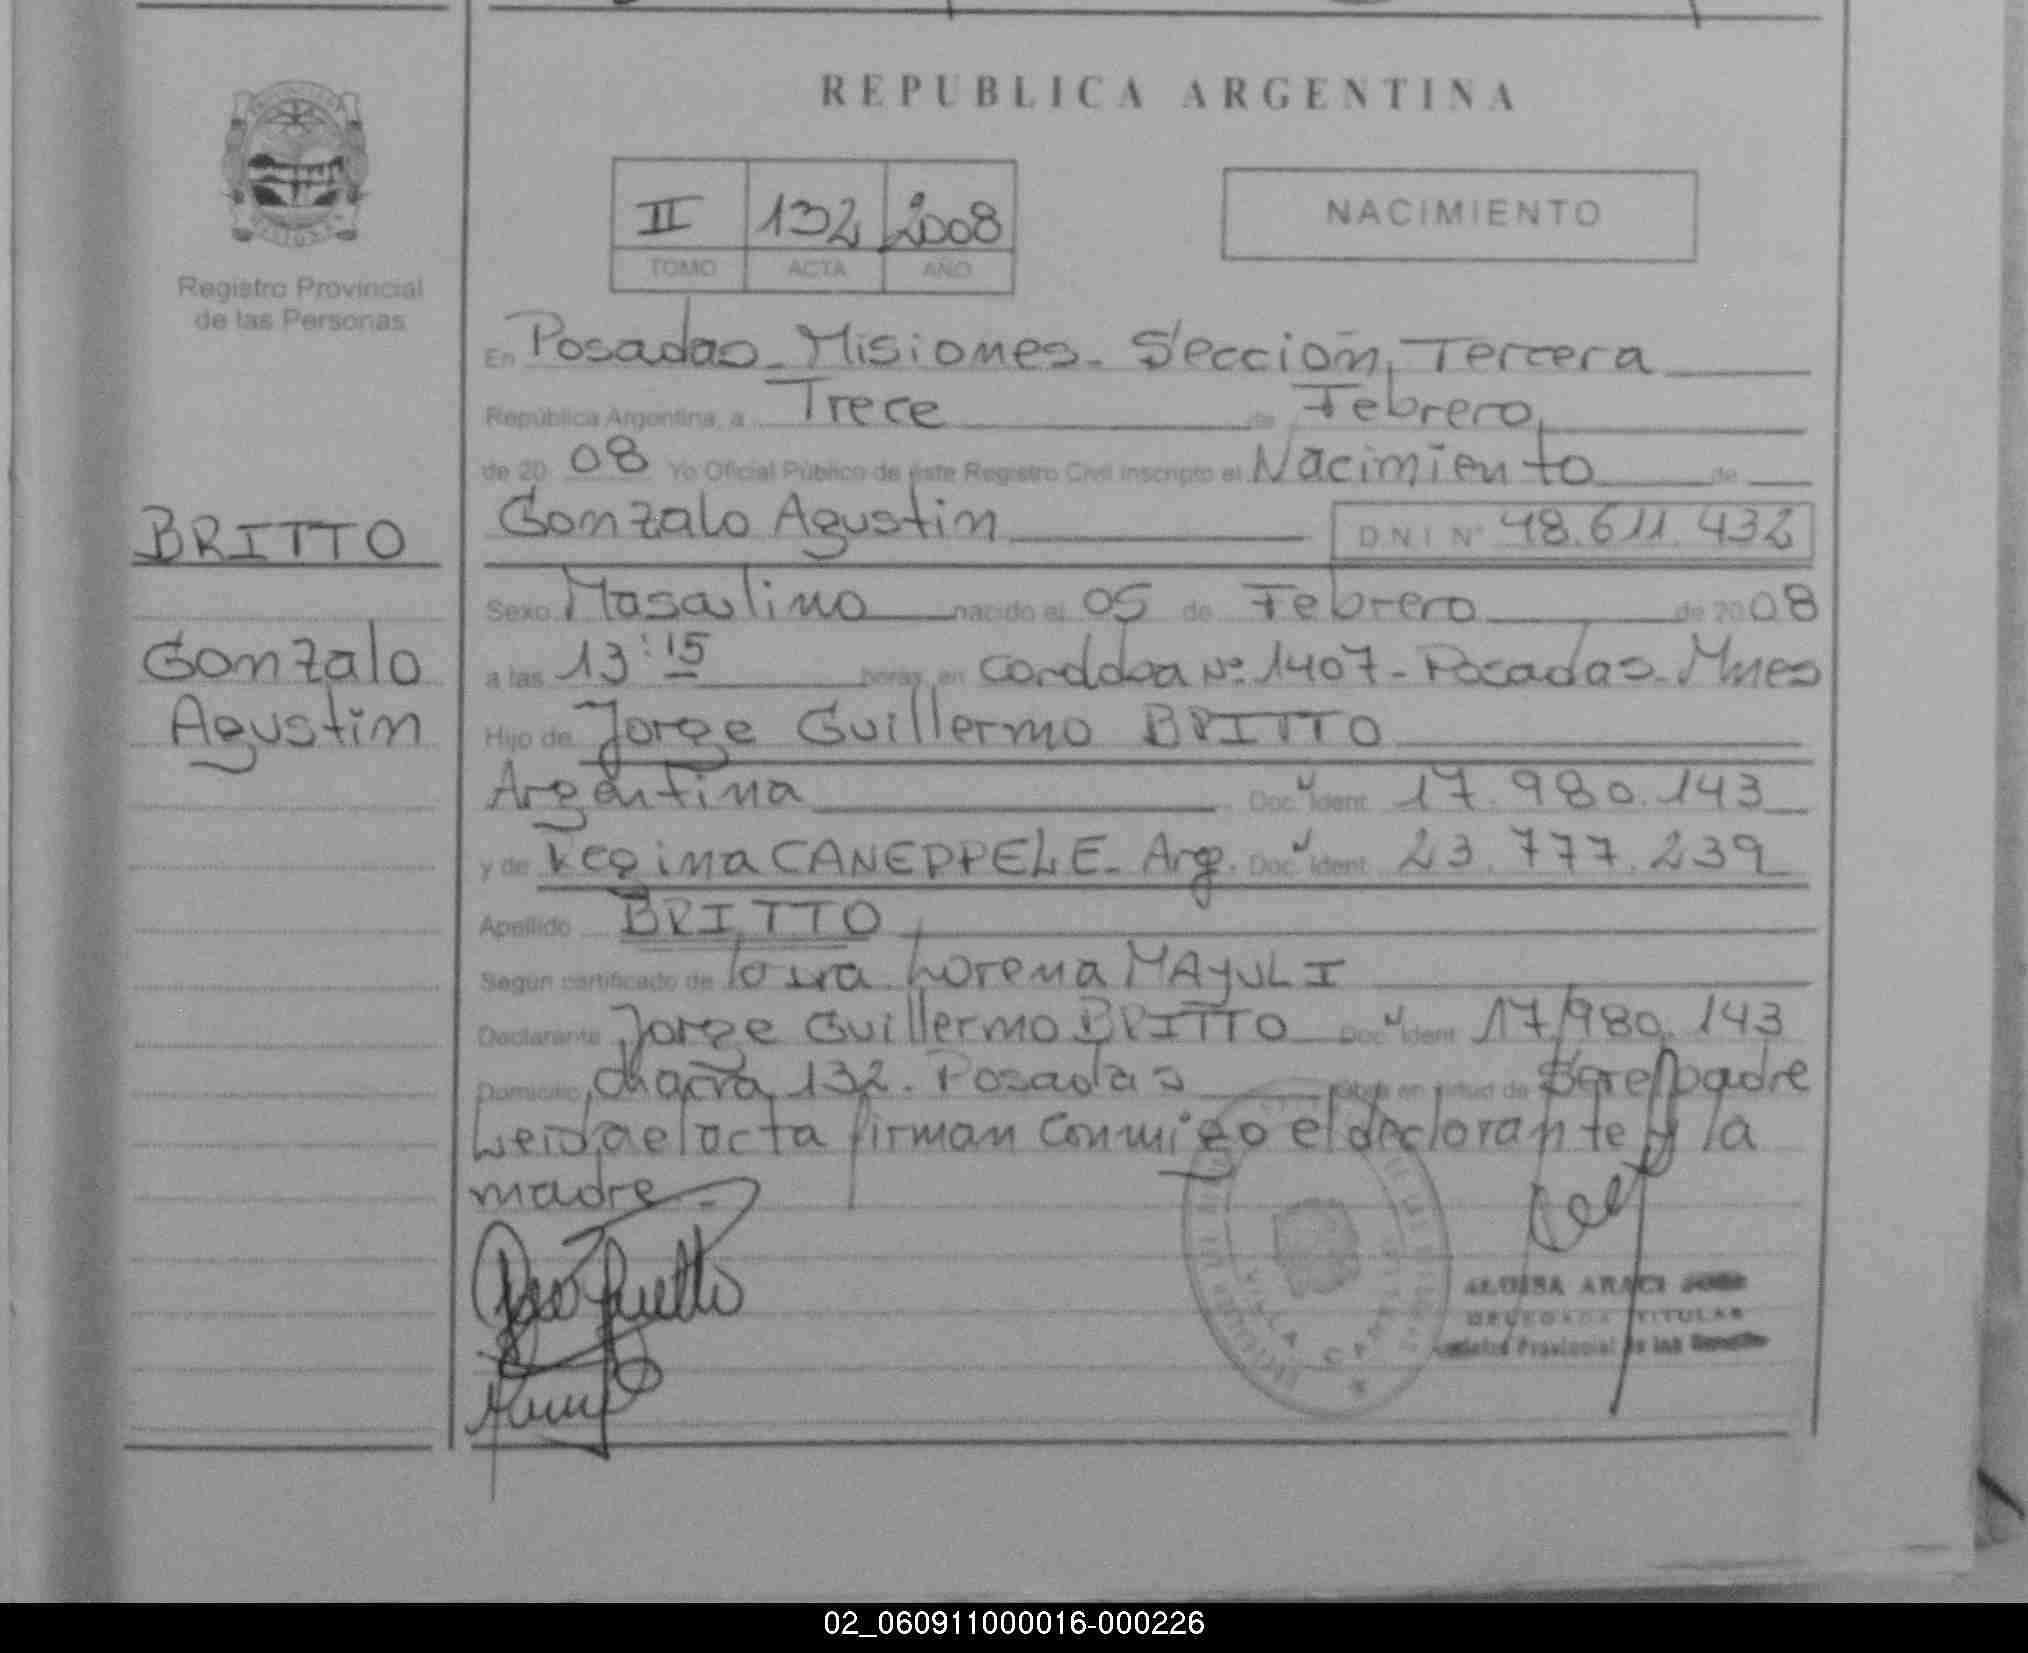 REPUBLICA ARGENTINA
II 132 2008
TOMO ACTA AÑO
NACIMIENTO
Registro Provincial
de las Personas
En Posadas - Misiones - Sección Tercera
República Argentina, a Trece de Febrero
de 2008 Yo Oficial Público de este Registro Civil inscripto el Nacimiento de
BRITTO
Gonzalo Agustin
D.N.I Nº 48.611.432
Sexo Masculino nacido el 05 de Febrero de 2008
Gonzalo
Agustin
a las 13:15 horas en Cordoba Nº 1407 - Posadas - Mnes
Hijo de Jorge Guillermo BRITTO
Argentina Doc. Ident. 17.980.143
y de Regina CANEPPELE - Arg. Doc. Ident. 23.777.239
Apellido BRITTO
Según certificado de Lorena MAYULI
Declarante Jorge Guillermo BRITTO Doc. Ident. 17.980.143
Domicilio Chacra 132 - Posadas obra en virtud de Ser el padre
Leida el acta firman Conmigo el declarante y la
madre -
VILLA CABELLO
ARACI
DELEGADA TITULAR
Registro Provincial de las
02_060911000016-000226